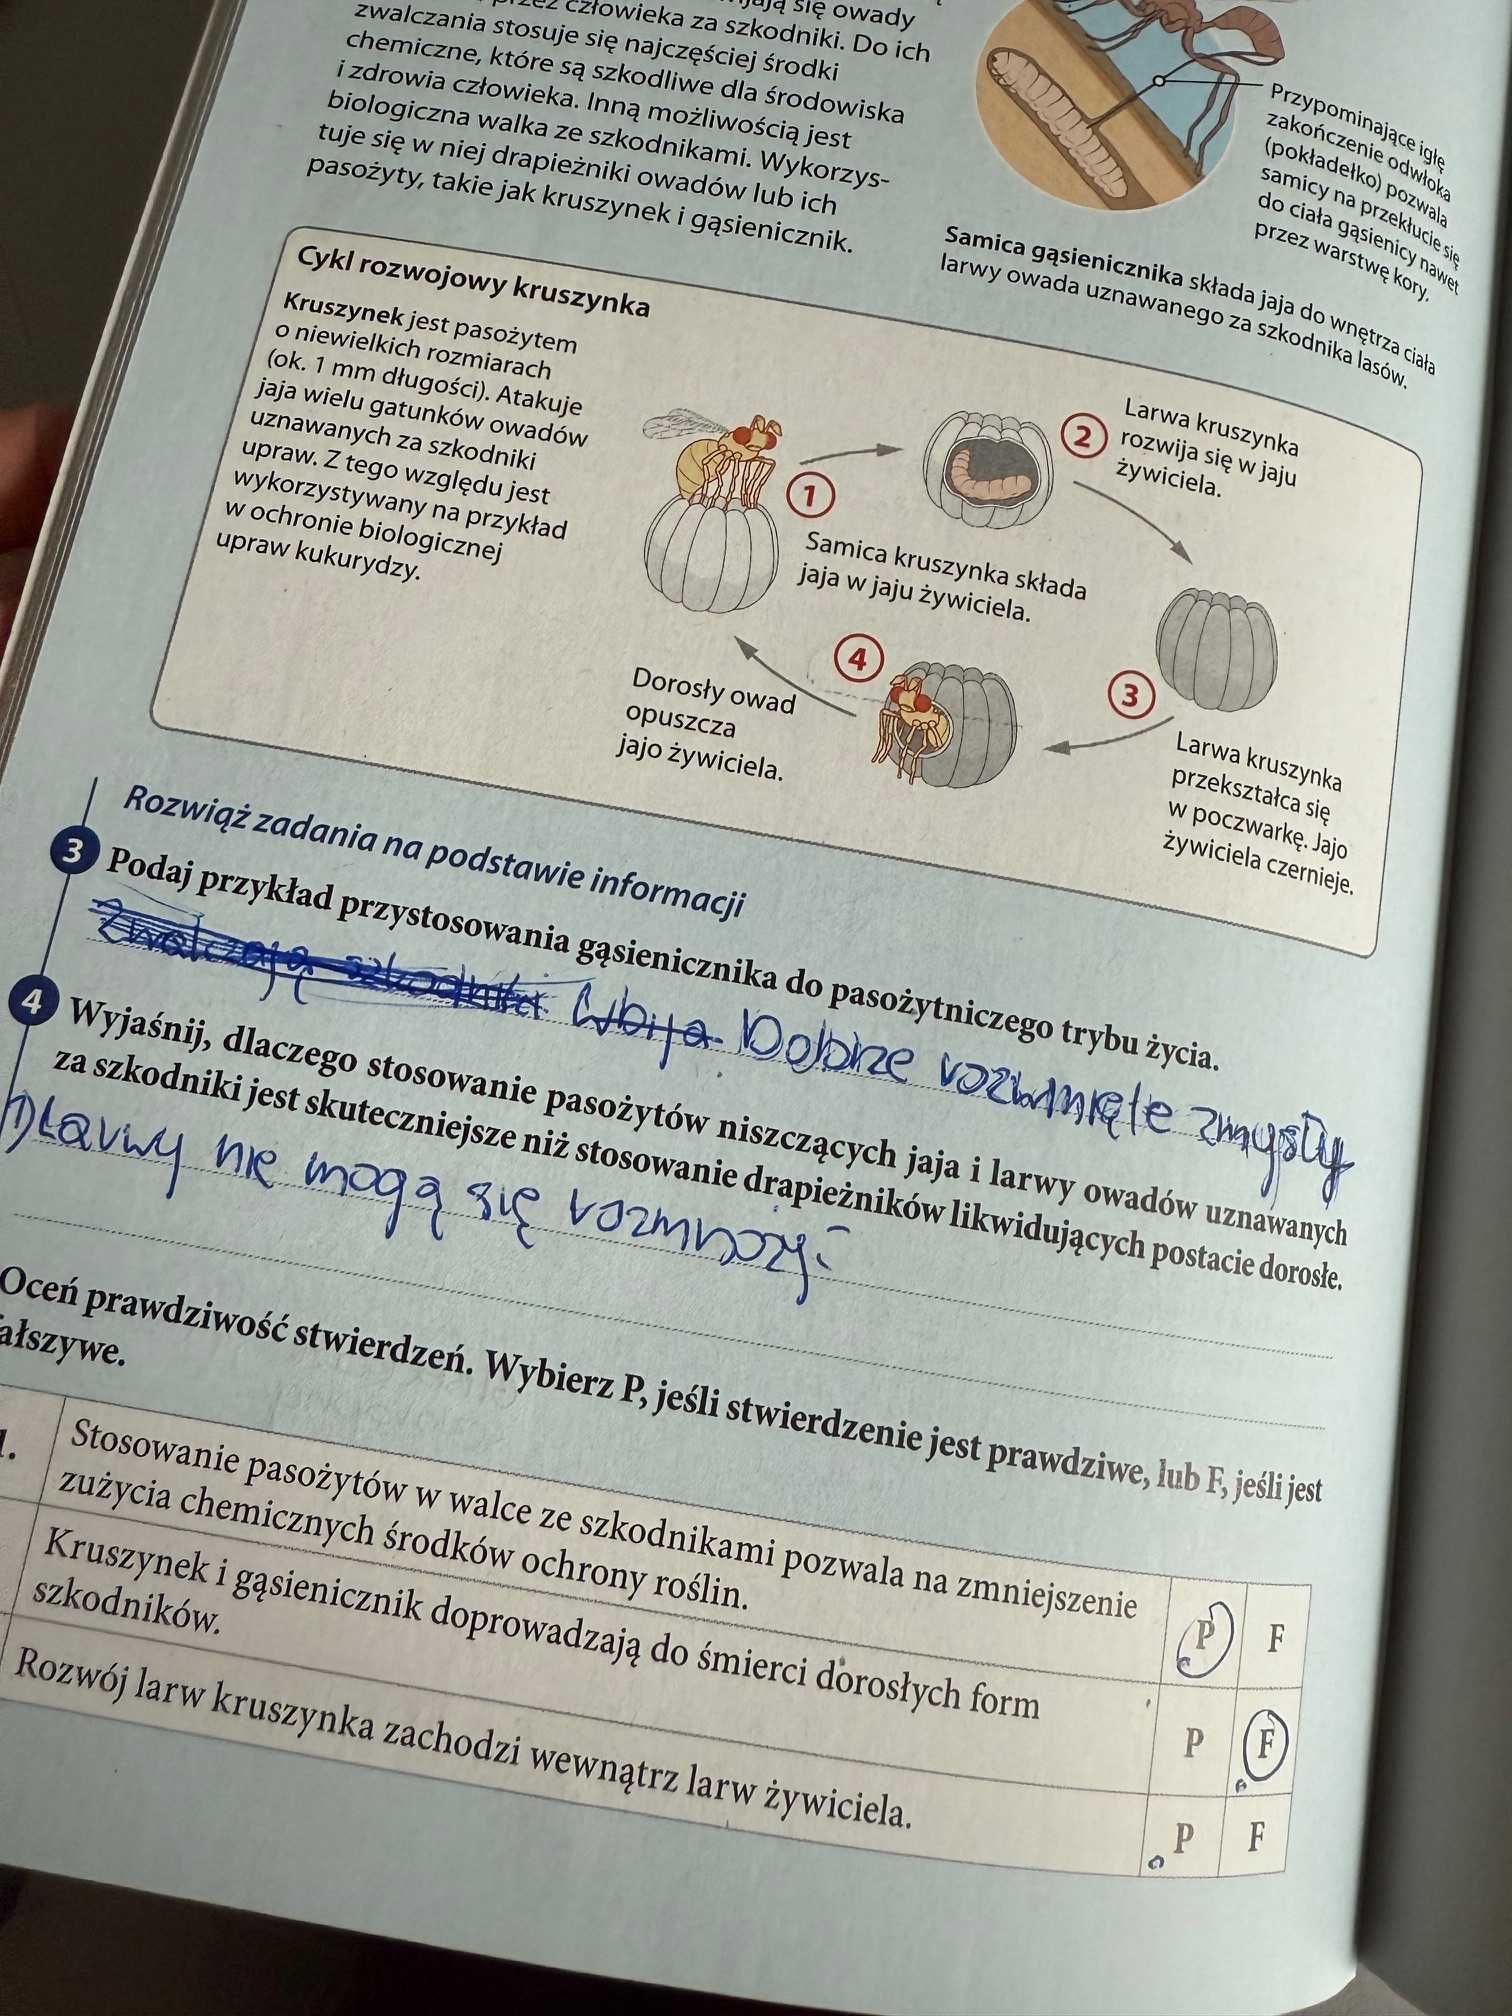 się owady
przez człowieka za szkodniki. Do ich
zwalczania stosuje się najczęściej środki
chemiczne, które są szkodliwe dla środowiska
i zdrowia człowieka. Inną możliwością jest
biologiczna walka ze szkodnikami. Wykorzys-
tuje się w niej drapieżniki owadów lub ich
pasożyty, takie jak kruszynek i gąsienicznik.
Przypominające igłę
zakończenie odwłoka
(pokładełko) pozwala
samicy na przekłucie się
do ciała gąsienicy nawet
przez warstwę kory.
Samica gąsienicznika składa jaja do wnętrza ciała
larwy owada uznawanego za szkodnika lasów.
Cykl rozwojowy kruszynka
Kruszynek jest pasożytem
o niewielkich rozmiarach
(ok. 1 mm długości). Atakuje
jaja wielu gatunków owadów
uznawanych za szkodniki
upraw. Z tego względu jest
wykorzystywany na przykład
w ochronie biologicznej
upraw kukurydzy.
1
Samica kruszynka składa
jaja w jaju żywiciela.
2
Larwa kruszynka
rozwija się w jaju
żywiciela.
3
Larwa kruszynka
przekształca się
w poczwarkę. Jajo
żywiciela czernieje.
4
Dorosły owad
opuszcza
jajo żywiciela.
Rozwiąż zadania na podstawie informacji
3 Podaj przykład przystosowania gąsienicznika do pasożytniczego trybu życia.
Zwalczają szkodniki Wbija Dobrze rozwinięte zmysły
4 Wyjaśnij, dlaczego stosowanie pasożytów niszczących jaja i larwy owadów uznawanych
za szkodniki jest skuteczniejsze niż stosowanie drapieżników likwidujących postacie dorosłe.
1) Larwy nie mogą się
Oceń prawdziwość stwierdzeń. Wybierz P, jeśli stwierdzenie jest prawdziwe, lub F, jeśli jest
fałszywe.
1. Stosowanie pasożytów w walce ze szkodnikami pozwala na zmniejszenie
zużycia chemicznych środków ochrony roślin. P F
Kruszynek i gąsienicznik doprowadzają do śmierci dorosłych form
szkodników. P F
Rozwój larw kruszynka zachodzi wewnątrz larw żywiciela. P F